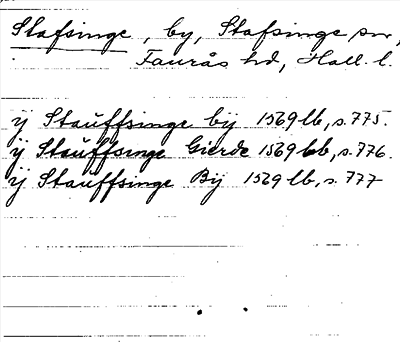 Stafsinge, by, Stafsinge sn,
Faurås hd, Hall. l.
ij Stauffsinge bij 1569 lb, s. 775.
ij Stauffsinge Gierde 1569 lb, s. 776.
ij Stauffsinge Bij 1569 lb, s. 777